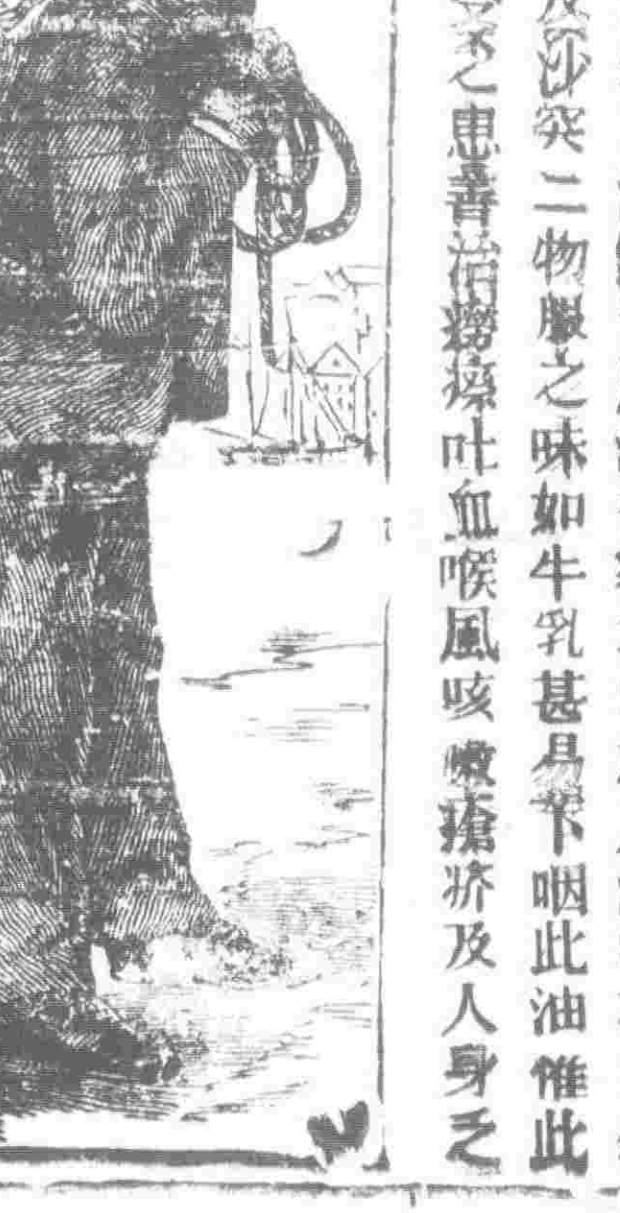 沙突二物服之味如牛乳甚易下咽此油惟此
之患善治癆瘵吐血喉風咳嗽瘡疥及人身乏